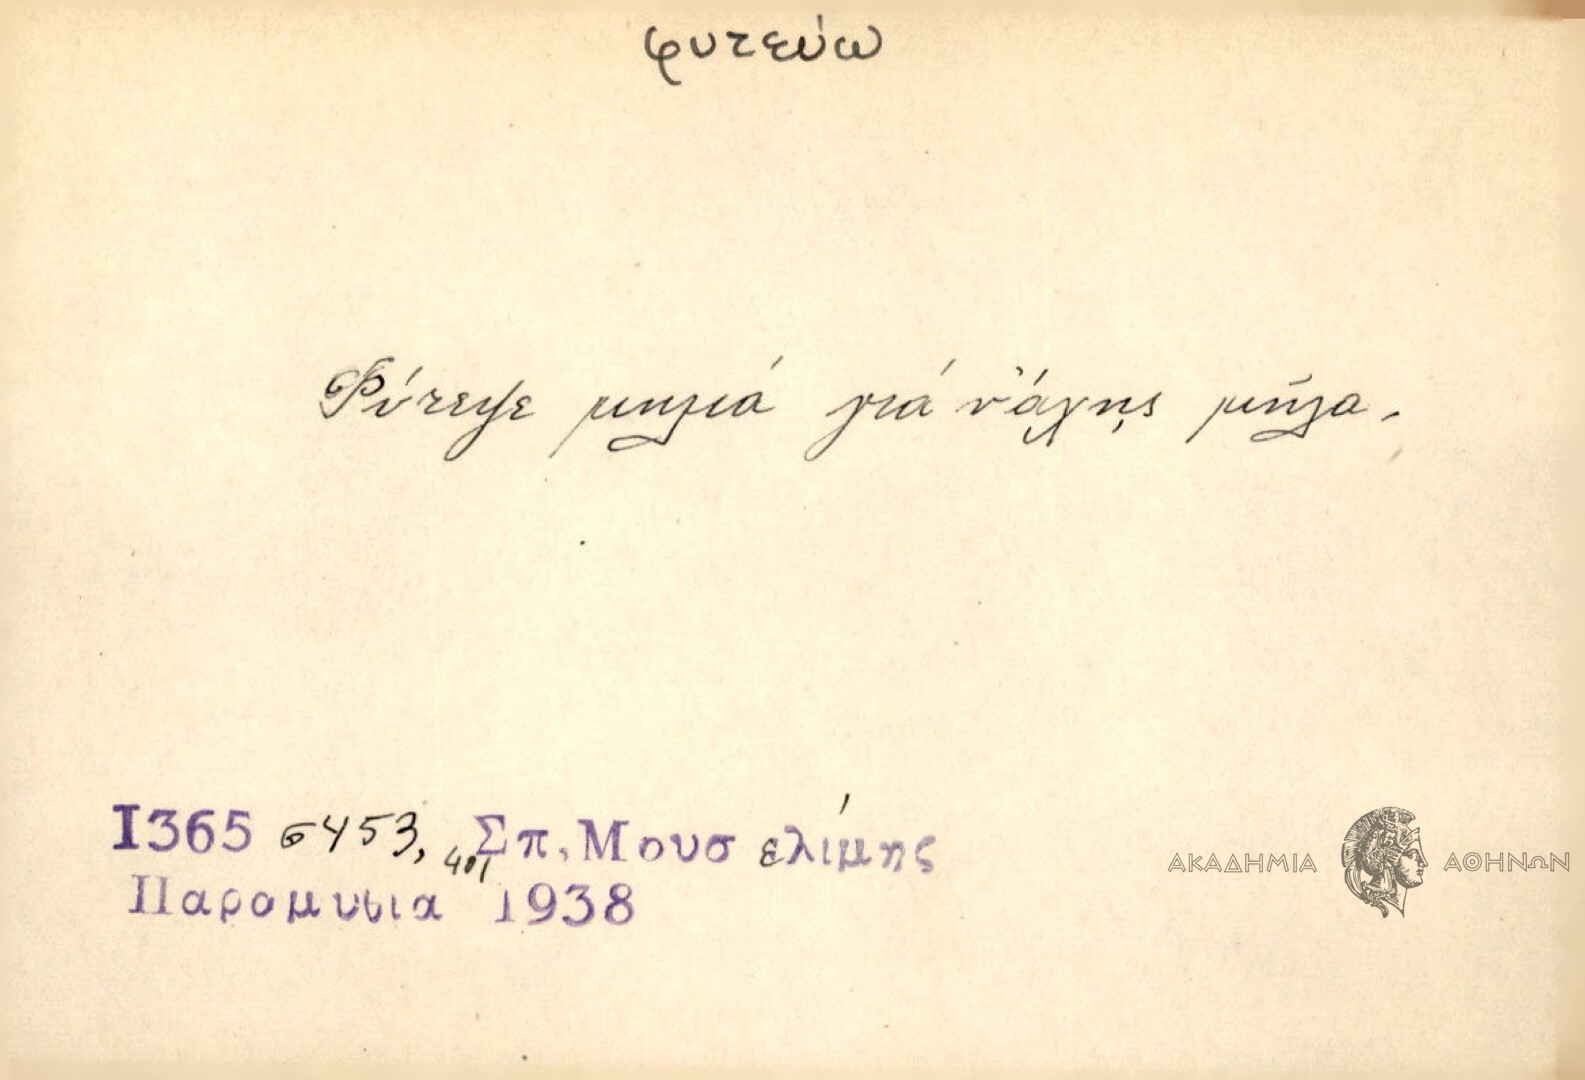 φυτεύω
Φύτεψε μηλιά γιά νἄχῃς μῆλα.
1365 σ 453, 401 Σπ. Μουσελίμης
Παραμυθια 1938
ΑΚΑΔΗΜΙΑ ΑΘΗΝΩΝ